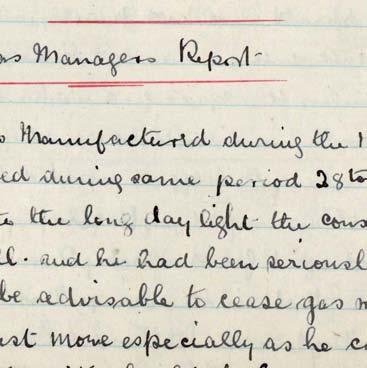 as Managers Report
s Manufactured during the 1
ed during same period 28th
to the long day light the cons
ll. and he had been seriousl
be advisable to cease gas m
ust more especially as he c